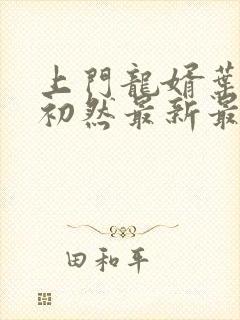 上門龍婿葉
初然最新最
田和平